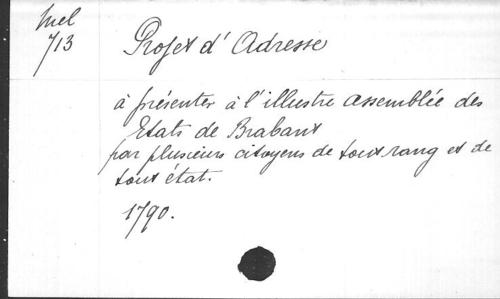 Mel
713
Projet d'Adresse
à présenter à l'illustre assemblée des
Etats de Brabant
par plusieurs citoyens de tout rang et de
tout état.
1790.